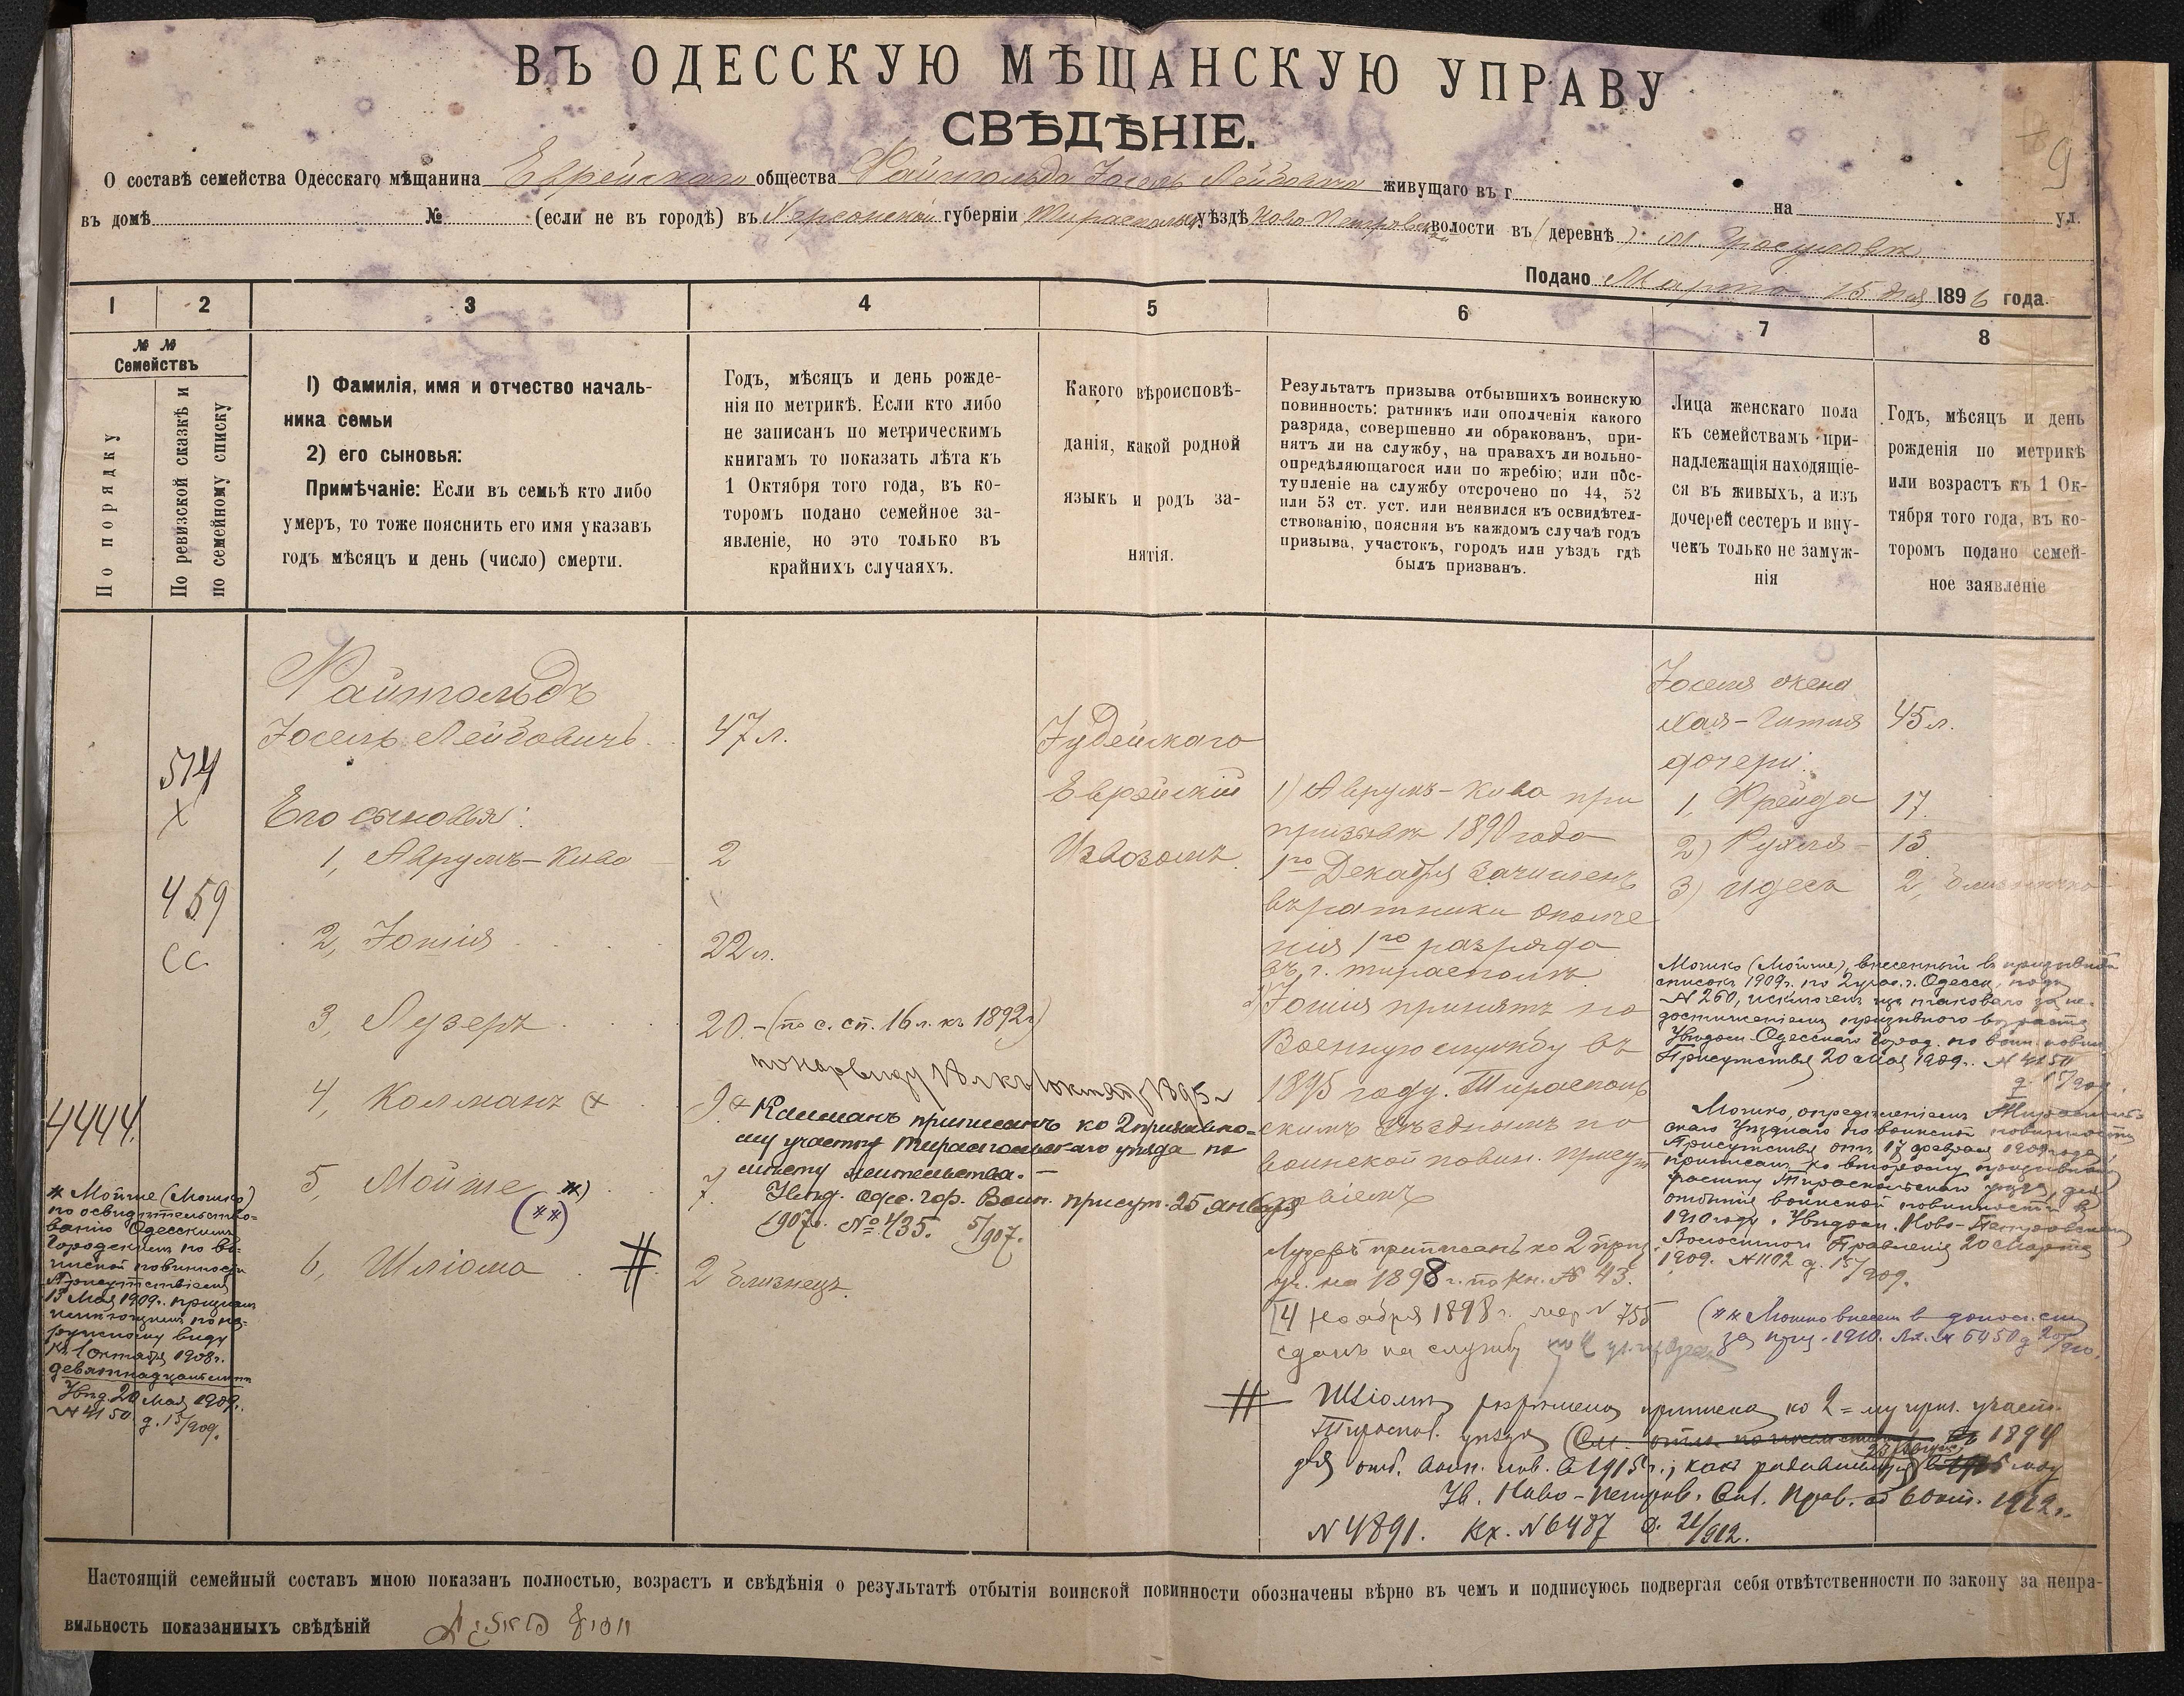 ВЪ ОДЕССКУЮ МѢЩАНСКУЮ УПРАВУ
СВѢДѢНІЕ.
О составѣ семейства Одесскаго мѣщанина Еврейскаго общества Файтольдъ Іосель Лейбовичъ живущаго въ г
на
въ домѣ № (если не въ городѣ) въ Херсонской губерніи Тираспольск уѣздѣ Ново-Петровской волости въ (деревнѣ) м. Гросулова
ул.
9
Подано Марта 15 дня 1896 года.
1 2 3 4 5 6 7 8
№ №
Семействъ
По порядку
По ревизской сказкѣ и
по семейному списку
1) Фамилія, имя и отчество началь-
ника семьи
2) его сыновья:
Примѣчаніе: Если въ семьѣ кто либо
умеръ, то тоже пояснить его имя указавъ
годъ мѣсяцъ и день (число) смерти.
Годъ, мѣсяцъ и день рожде-
нія по метрикѣ. Если кто либо
не записанъ по метрическимъ
книгамъ то показать лѣта къ
1 Октября того года, въ ко-
торомъ подано семейное за-
явленіе, но это только въ
крайнихъ случаяхъ.
Какого вѣроисповѣ-
данія, какой родной
языкъ и родъ за-
нятія.
Результатъ призыва отбывшихъ воинскую
повинность: ратникъ или ополченія какого
разряда, совершенно ли обракованъ, при-
нятъ ли на службу, на правахъ ли вольно-
опредѣляющагося или по жребію; или пос-
тупленіе на службу отсрочено по 44, 52
или 53 ст. уст. или неявился къ освидѣтел-
ствованію, поясняя въ каждомъ случаѣ годъ
призыва, участокъ, городъ или уѣздъ гдѣ
былъ призванъ.
Лица женскаго пола
къ семействамъ при-
надлежащія находящіе-
ся въ живыхъ, а изъ
дочерей сестеръ и вну-
чекъ только не замуж-
нія
Годъ, мѣсяцъ и день
рожденія по метрикѣ
или возрастъ къ 1 Ок-
тября того года, въ ко-
торомъ подано семей-
ное заявленіе
514
х
459
сс.
4444.
Файтольдъ
Іосель Лейбовичъ
Его сыновья:
1, Аврумъ-Кива
2, Іошія
3, Лузеръ
4, Колманъ
5, Мойше *)
(**)
6, Шліома #
47 л.
2
22 л.
20 - (по с. сп. 16 л. къ 1892 г)
по нар виду 18 л къ 1 октяб 1895 г
9
Калманъ приписанъ ко 2 призывно-
му участку Тираспольскаго уѣзда по
мѣсту жительства. —
7.
Увѣд. Одес. гор. Воин. присут. 25 января
1907 г. № 435. 5/907.
2 близнецъ
Іудейскаго
Еврейскій
Извозомъ
1) Аврумъ-Кива при
призывѣ 1890 года
1го Декабря зачисленъ
въ ратники ополче
нія 1го разряда
въ г. Тирасполѣ
Іошія принятъ на
Военную службу въ
1895 году. Тирасполь
скимъ уѣзднымъ по
воинской повин. присут
ствіемъ
Лузеръ приписанъ ко 2 приз.
уч. на 1898 г. по кн. № 43.
14 ноября 1898 г. жер № 755
сданъ на службу
Іоселя жена
Хая-Гитля
дочери:
1, Фрейда
2) Рухля
3) Идесъ
45 л.
17.
13
2, близнечка
Мошко (Мойше), внесенный въ призывной
списокъ 1909 г. по 2 участ. г. Одессы, подъ
№ 260, исключенъ изъ таковаго за не-
достиженіемъ призывного возраста
Увѣдом. Одесскаго Город. по воин. повин.
Присутствія 20 Мая 1909 г. № 4150
д. 15/909.
Мошко, опредѣленіемъ Тирасполь-
скаго Уѣзднаго по воинской повинности
Присутствія отъ 17 февраля 1909 года,
приписанъ ко второму призывному
участку Тираспольскаго уѣзда, для
отбытія воинской повинности въ
1910 году. Увѣдом. Ново-Петровскаго
Волостного Правленія 20 Марта
1909. № 1102 д. 15/909.
(** Мошко внесенъ в дополн. сп.
* Мойше (Мошко)
по освидѣтельство-
ванію Одесскимъ
Городскимъ по во-
инской повинности
Присутствіемъ
15 Мая 1909 г. признанъ
имѣющимъ по на-
ружному виду
къ 1 октября 1908 г.
девятнадцать лѣтъ
Увѣд. 20 Мая 1909 г.
№ 4150 д. 15/909.
# Шліомѣ разрѣшена приписка ко 2=му приз. участ.
Тираспол. уѣзда 1894
для отб. воин. пов. в 1915 г.; какъ родившемуся
Ув. Ново-Петров. Вол. Прав. от 6 окт. 1912 г.
№ 4891. Вх. № 6487 д. 21/912.
Настоящій семейный составъ мною показанъ полностью, возрастъ и свѣдѣнія о результатѣ отбытія воинской повинности обозначены вѣрно въ чемъ и подписуюсь подвергая себя отвѣтственности по закону за непра-
вильность показанныхъ свѣдѣній